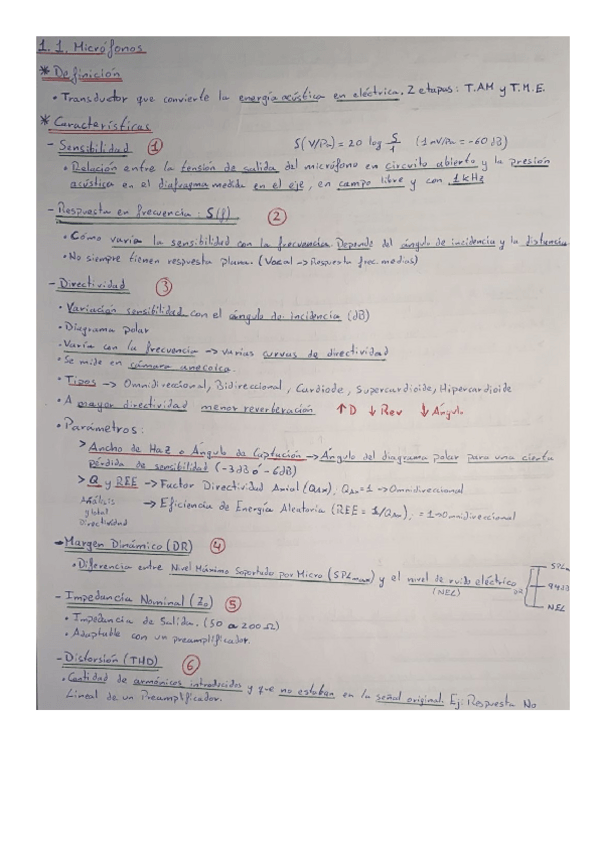 1.1. Micrófonos
* Definición
• Transductor que convierte la energía acústica en eléctrica. 2 etapas: T.AM y T.M.E.
* Características
- Sensibilidad 1 S(V/Pa) = 20 log S/1 (1mV/Pa = -60dB)
• Relación entre la tensión de salida del micrófono en circuito abierto y la presión
acústica en el diafragma medida en el eje, en campo libre y con 1kHz
- Respuesta en frecuencia: S(f) 2
• Cómo varía la sensibilidad con la frecuencia Depende del ángulo de incidencia y la distancia
• No siempre tienen respuesta plana. (Vocal -> Respuesta frec. medias)
- Directividad 3
• Variación sensibilidad con el ángulo de incidencia (dB)
• Diagrama polar
• Varía con la frecuencia -> varias curvas de directividad
• Se mide en cámara anecoica.
• Tipos -> Omnidireccional, Bidireccional, Cardiode, Supercardioide, Hipercardioide
• A mayor directividad menor reverberación ↑D ↓Rev ↓Ángulo
• Parámetros:
> Ancho de Haz o Ángulo de Captación -> Ángulo del diagrama polar para una cierta
pérdida de sensibilidad (-3dB ó -6dB)
> Q y REE -> Factor Directividad Axial (QAx), QAx=1 -> Omnidireccional
Análisis global Directividad
-> Eficiencia de Energía Aleatoria (REE = 1/QAx), =1->Omnidireccional
- Margen Dinámico (DR) 4
• Diferencia entre Nivel Máximo Soportado por Micro (SPLmax) y el nivel de ruido eléctrico
(NEL)
SPLm
94dB
NEL
- Impedancia Nominal (Zo) 5
• Impedancia de Salida. (50 a 200 Ω)
• Adaptable con un preamplificador.
- Distorsión (THD) 6
• Cantidad de armónicos introducidos y que no estaban en la señal original. Ej: Respuesta No
Lineal de un Preamplificador.